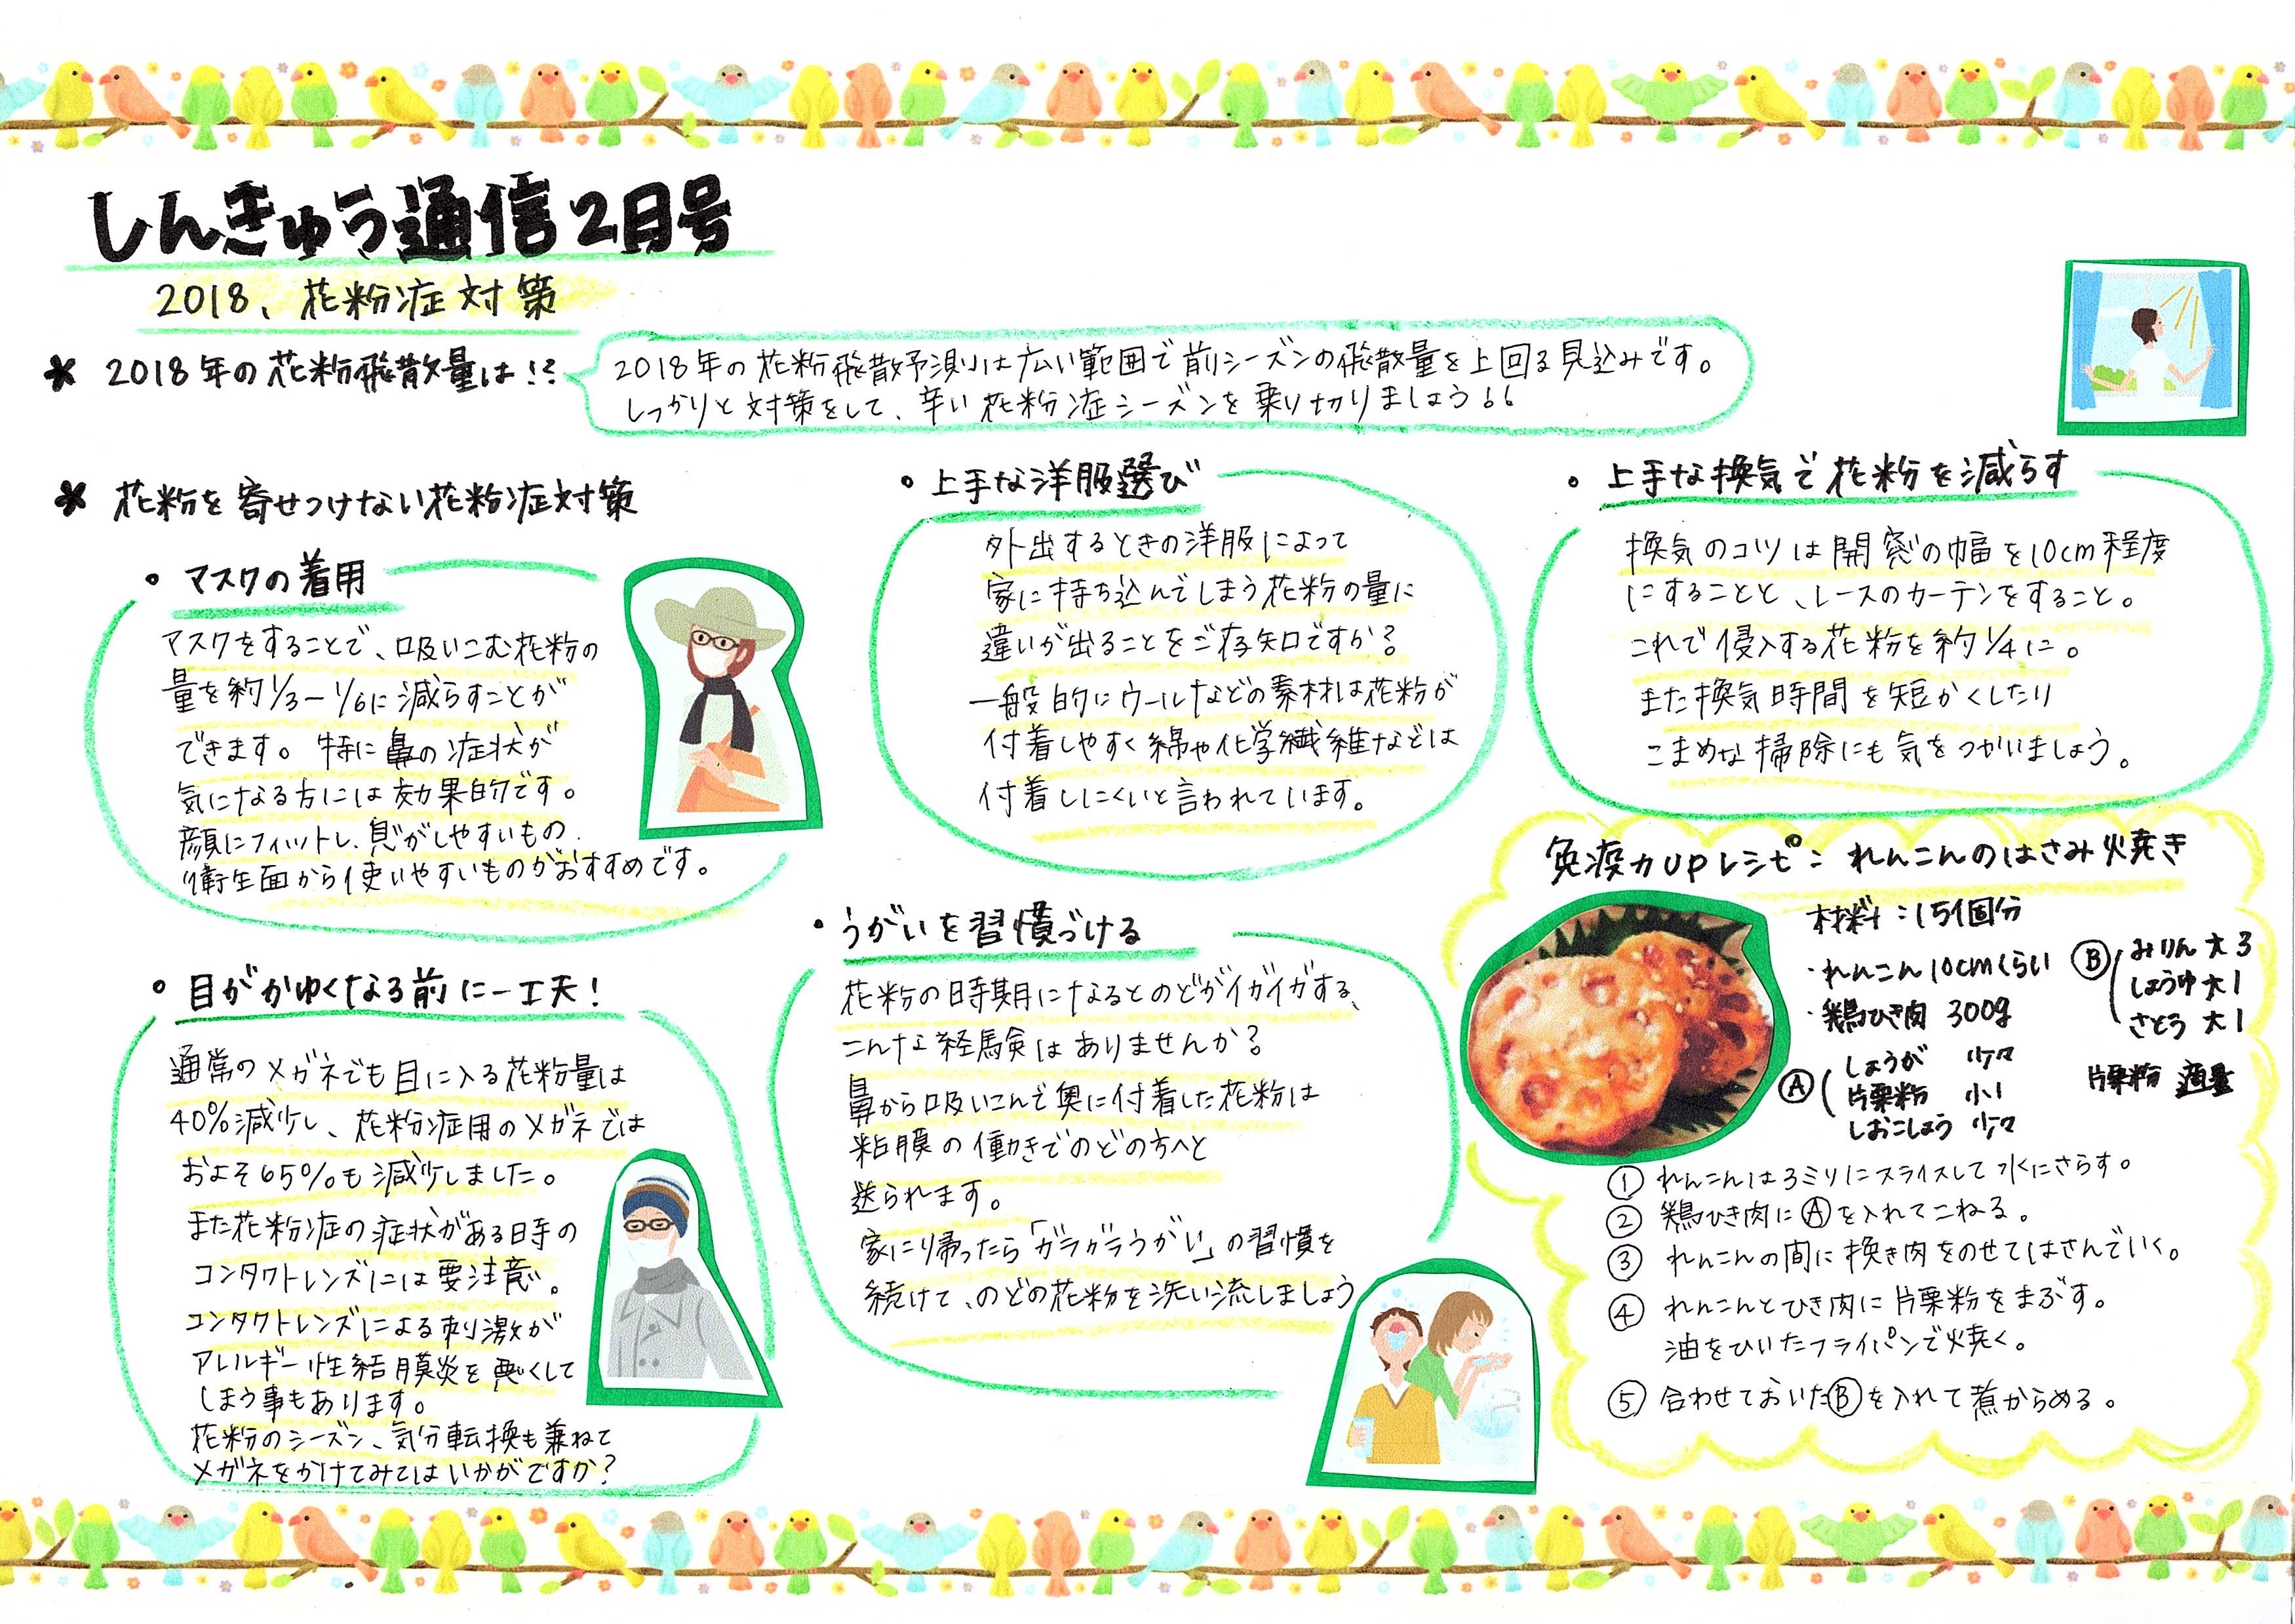 しんきゅう通信2月号
2018、花粉症対策
* 2018年の花粉飛散量は!?
2018年の花粉飛散予測は広い範囲で前シーズンの飛散量を上回る見込みです。
しっかりと対策をして、辛い花粉症シーズンを乗り切りましょう!!
* 花粉を寄せつけない花粉症対策
・マスクの着用
マスクをすることで、吸いこむ花粉の
量を約1/3〜1/6に減らすことが
できます。特に鼻の症状が
気になる方には効果的です。
顔にフィットし、息がしやすいもの、
衛生面から使いやすいものがおすすめです。
・目がかゆくなる前に一工夫!
通常のメガネでも目に入る花粉量は
40%減少し、花粉症用のメガネでは
およそ65%も減少しました。
また花粉症の症状がある時の
コンタクトレンズには要注意。
コンタクトレンズによる刺激が
アレルギー性結膜炎を悪くして
しまう事もあります。
花粉のシーズン、気分転換も兼ねて
メガネをかけてみてはいかがですか?
・上手な洋服選び
外出するときの洋服によって
家に持ち込んでしまう花粉の量に
違いが出ることをご存知ですか?
一般的にウールなどの素材は花粉が
付着しやすく綿や化学繊維などは
付着しにくいと言われています。
・うがいを習慣づける
花粉の時期になるとのどがイガイガする、
こんな経験はありませんか?
鼻から吸いこんで奥に付着した花粉は
粘膜の働きでのどの方へと
送られます。
家に帰ったら「ガラガラうがい」の習慣を
続けて、のどの花粉を洗い流しましょう
・上手な換気で花粉を減らす
換気のコツは開窓の幅を10cm程度
にすることと、レースのカーテンをすること。
これで侵入する花粉を約1/4に。
また換気時間を短かくしたり
こまめな掃除にも気をつかいましょう。
免疫力UPレシピ:れんこんのはさみ焼き
材料:15個分
・れんこん10cmくらい
・鶏ひき肉 300g
Ⓐ しょうが 少々
片栗粉 小1
しおこしょう 少々
Ⓑ みりん 大3
しょうゆ 大1
さとう 大1
片栗粉 適量
① れんこんは3ミリにスライスして水にさらす。
② 鶏ひき肉にⒶを入れてこねる。
③ れんこんの間に挽き肉をのせてはさんでいく。
④ れんこんとひき肉に片栗粉をまぶす。
油をひいたフライパンで焼く。
⑤ 合わせておいたⒷを入れて煮からめる。